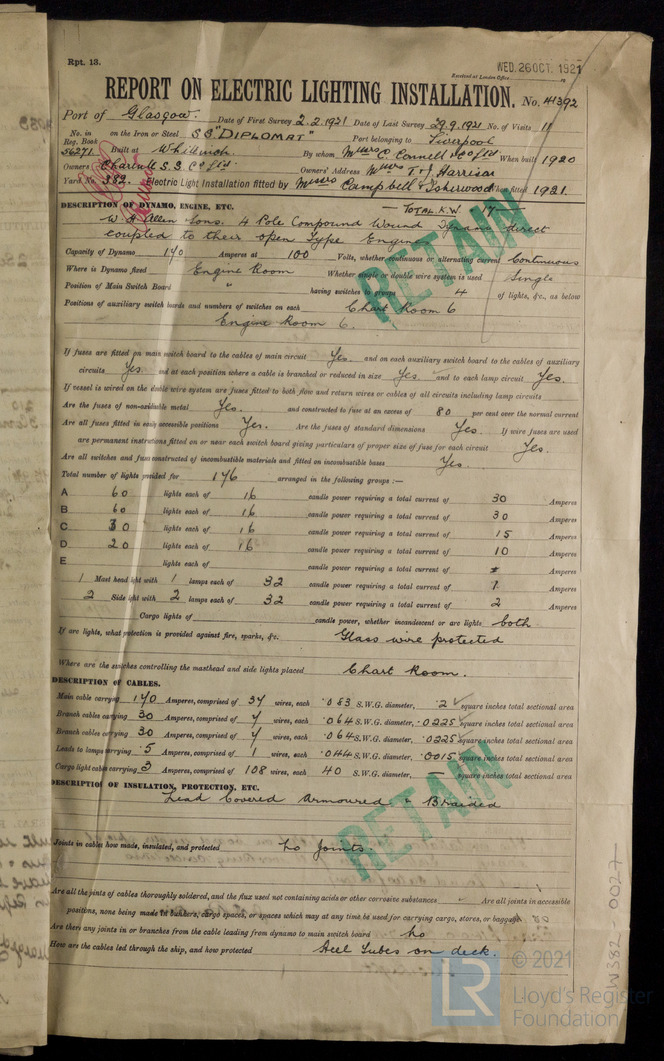 Rpt. 13.
WED. 26 OCT. 1921
Received at London Office
REPORT ON ELECTRIC LIGHTING INSTALLATION. No. 41392
Port of Glasgow. Date of First Survey 2.2.1921 Date of Last Survey 29.9.1921 No. of Visits 11
No. in Reg. Book on the Iron or Steel SS "DIPLOMAT" Port belonging to Liverpool
56271. Built at Whiteinch. By whom Messrs C. Connell & Co Ltd When built 1920
Owners Charente S.S. Co Ltd. Owners' Address Messrs T & J Harrison
Yard No. 382. Electric Light Installation fitted by Messrs Campbell & Isherwood When fitted 1921.
DESCRIPTION OF DYNAMO, ENGINE, ETC. — TOTAL K.W. 14
W. H. Allen Sons. 4 Pole Compound Wound Dynamo direct
coupled to their open Type Engine
Capacity of Dynamo 140 Amperes at 100 Volts, whether continuous or alternating current Continuous
Where is Dynamo fixed Engine Room Whether single or double wire system is used Single
Position of Main Switch Board " having switches to groups 4 of lights, &c., as below
Positions of auxiliary switch boards and numbers of switches on each Chart Room 6
Engine Room 6.
If fuses are fitted on main switch board to the cables of main circuit Yes. and on each auxiliary switch board to the cables of auxiliary
circuits Yes. and at each position where a cable is branched or reduced in size Yes and to each lamp circuit Yes.
If vessel is wired on the double wire system are fuses fitted to both flow and return wires or cables of all circuits including lamp circuits
Are the fuses of non-oxidizable metal Yes. and constructed to fuse at an excess of 80 per cent over the normal current
Are all fuses fitted in easily accessible positions Yes. Are the fuses of standard dimensions Yes. If wire fuses are used
are permanent instructions fitted on or near each switch board giving particulars of proper size of fuse for each circuit Yes.
Are all switches and fuses constructed of incombustible materials and fitted on incombustible bases Yes.
Total number of lights provided for 176 arranged in the following groups :—
A 60 lights each of 16 candle power requiring a total current of 30 Amperes
B 60 lights each of 16 candle power requiring a total current of 30 Amperes
C 30 lights each of 16 candle power requiring a total current of 15 Amperes
D 20 lights each of 16 candle power requiring a total current of 10 Amperes
E lights each of candle power requiring a total current of Amperes
1 Mast head light with 1 lamps each of 32 candle power requiring a total current of 1 Amperes
2 Side light with 2 lamps each of 32 candle power requiring a total current of 2 Amperes
Cargo lights of candle power, whether incandescent or arc lights both
If arc lights, what protection is provided against fire, sparks, &c. Glass wire protected
Where are the switches controlling the masthead and side lights placed Chart Room.
DESCRIPTION OF CABLES.
Main cable carrying 140 Amperes, comprised of 37 wires, each .083 S.W.G. diameter, .2 square inches total sectional area
Branch cables carrying 30 Amperes, comprised of 7 wires, each .064 S.W.G. diameter, .0225 square inches total sectional area
Branch cables carrying 30 Amperes, comprised of 7 wires, each .064 S.W.G. diameter, .0225 square inches total sectional area
Leads to lamps carrying .5 Amperes, comprised of 1 wires, each .044 S.W.G. diameter, .0015 square inches total sectional area
Cargo light cables carrying 3 Amperes, comprised of 108 wires, each 40 S.W.G. diameter, — square inches total sectional area
DESCRIPTION OF INSULATION, PROTECTION, ETC.
Lead Covered Armoured & Braided
Joints in cables how made, insulated, and protected no joints.
Are all the joints of cables thoroughly soldered, and the flux used not containing acids or other corrosive substances Are all joints in accessible
positions, none being made in bunkers, cargo spaces, or spaces which may at any time be used for carrying cargo, stores, or baggage
Are there any joints in or branches from the cable leading from dynamo to main switch board no
How are the cables led through the ship, and how protected Steel Tubes on deck.
RETAIN
RETAIN
W382 0027
© 2021
LR Lloyd's Register
Foundation